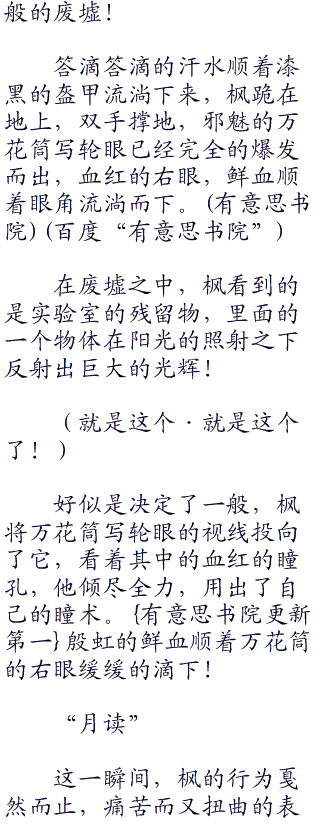 般的废墟！
答滴答滴的汗水顺着漆
黑的盔甲流淌下来，枫跪在
地上，双手撑地，邪魅的万
花筒写轮眼已经完全的爆发
而出，血红的右眼，鲜血顺
着眼角流淌而下。(有意思书
院)(百度“有意思书院”)
在废墟之中，枫看到的
是实验室的残留物，里面的
一个物体在阳光的照射之下
反射出巨大的光辉！
（就是这个·就是这个
了！）
好似是决定了一般，枫
将万花筒写轮眼的视线投向
了它，看着其中的血红的瞳
孔，他倾尽全力，用出了自
己的瞳术。{有意思书院更新
第一}殷虹的鲜血顺着万花筒
的右眼缓缓的滴下！
“月读”
这一瞬间，枫的行为戛
然而止，痛苦而又扭曲的表